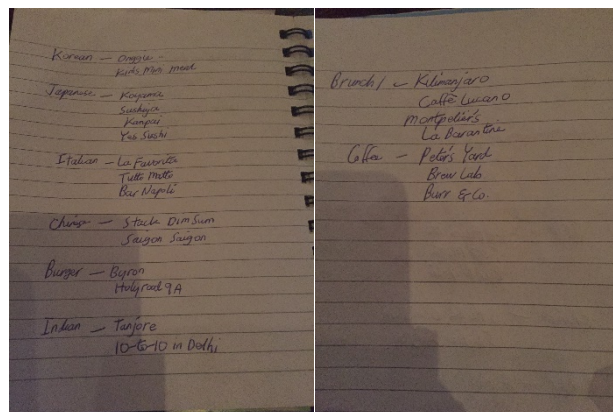 Korean - Ongie
Kids Mon Ineed
Japanese - Koyama
Sushiya
Kanpai
Yes Sushi
Italian - La Favorita
Tutto Matto
Bar Napoli
Chinese - Stack Dim Sum
Saigon Saigon
Burger - Byron
Holyrood 9A
Indian - Tanjore
10-to-10 in Delhi
Brunch / - Kilimanjaro
Caffè Lucano
Montpeliers
La Barantine
Coffee - Peter's Yard
Brew Lab
Burr & Co.